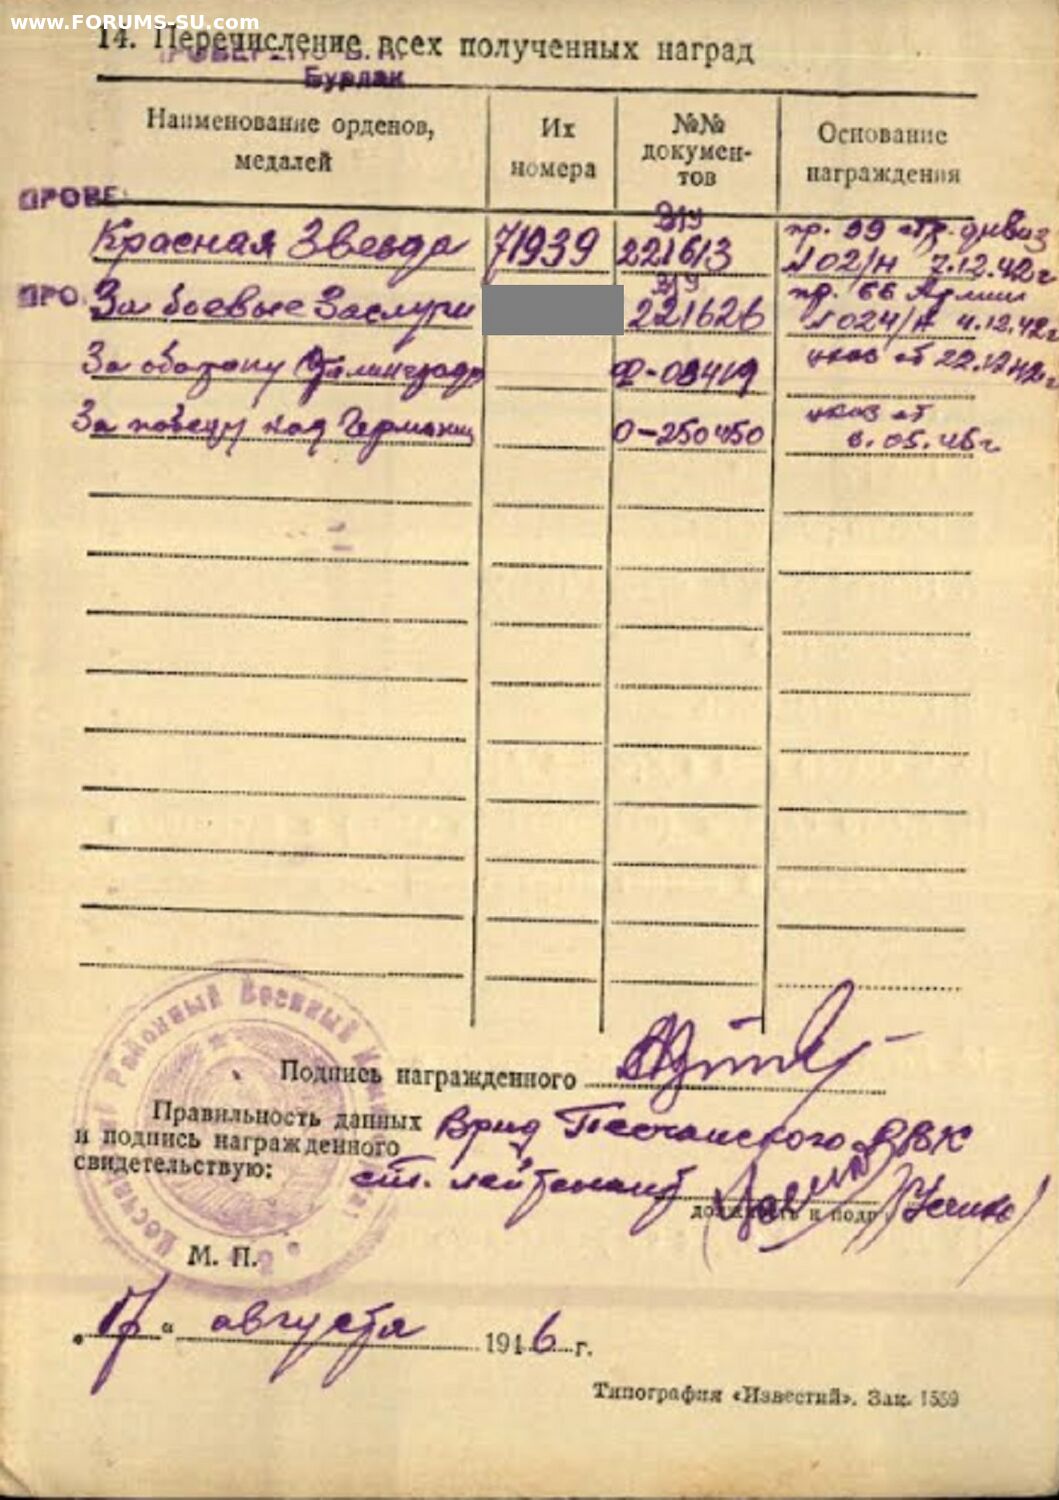 www.FORUMS-SU.com
14. Перечисление всех полученных наград
Бурлак
Наименование орденов, медалей
Их номера
№№ документов
Основание награждения
ПРОВЕ
Красная Звезда 71939 в/у 221613 пр. 99 стр. дивиз
№02/н 7.12.42г
ПРО
За боевые Заслуги в/у 221626 пр. 66 Армии
№024/н 4.12.42г
За оборону Сталинграда Ф-08419 указ от 22.12.42г
За победу над Германией О-250450 указ от
9.05.45г
Районный Военный
Подпись награжденного
Правильность данных
и подпись награжденного
свидетельствую:
Врид Песчанского РВК
ст. лейтенант
должность и подп
М. П.
„17“ августа 1946 г.
Типография «Известий». Зак. 1559